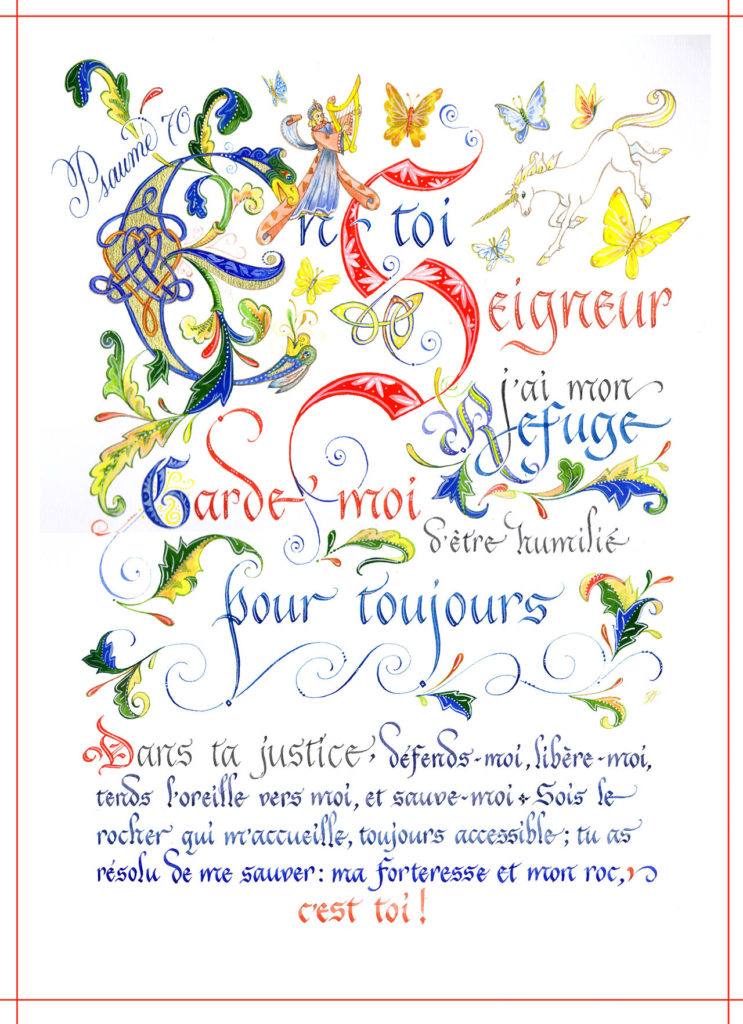 Psaume 70
En toi
Seigneur
j'ai mon
Refuge
Garde-moi
d'être humilié
pour toujours
Dans ta justice, défends-moi, libère-moi,
tends l'oreille vers moi, et sauve-moi. Sois le
rocher qui m'accueille, toujours accessible; tu as
résolu de me sauver: ma forteresse et mon roc,
c'est toi!